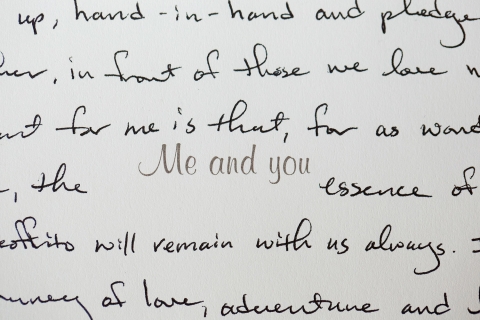 up, hand-in-hand and pledge
in front of those we love
for me is that, for as
Me and you
the essence of
will remain with us always.
of love, adventure and